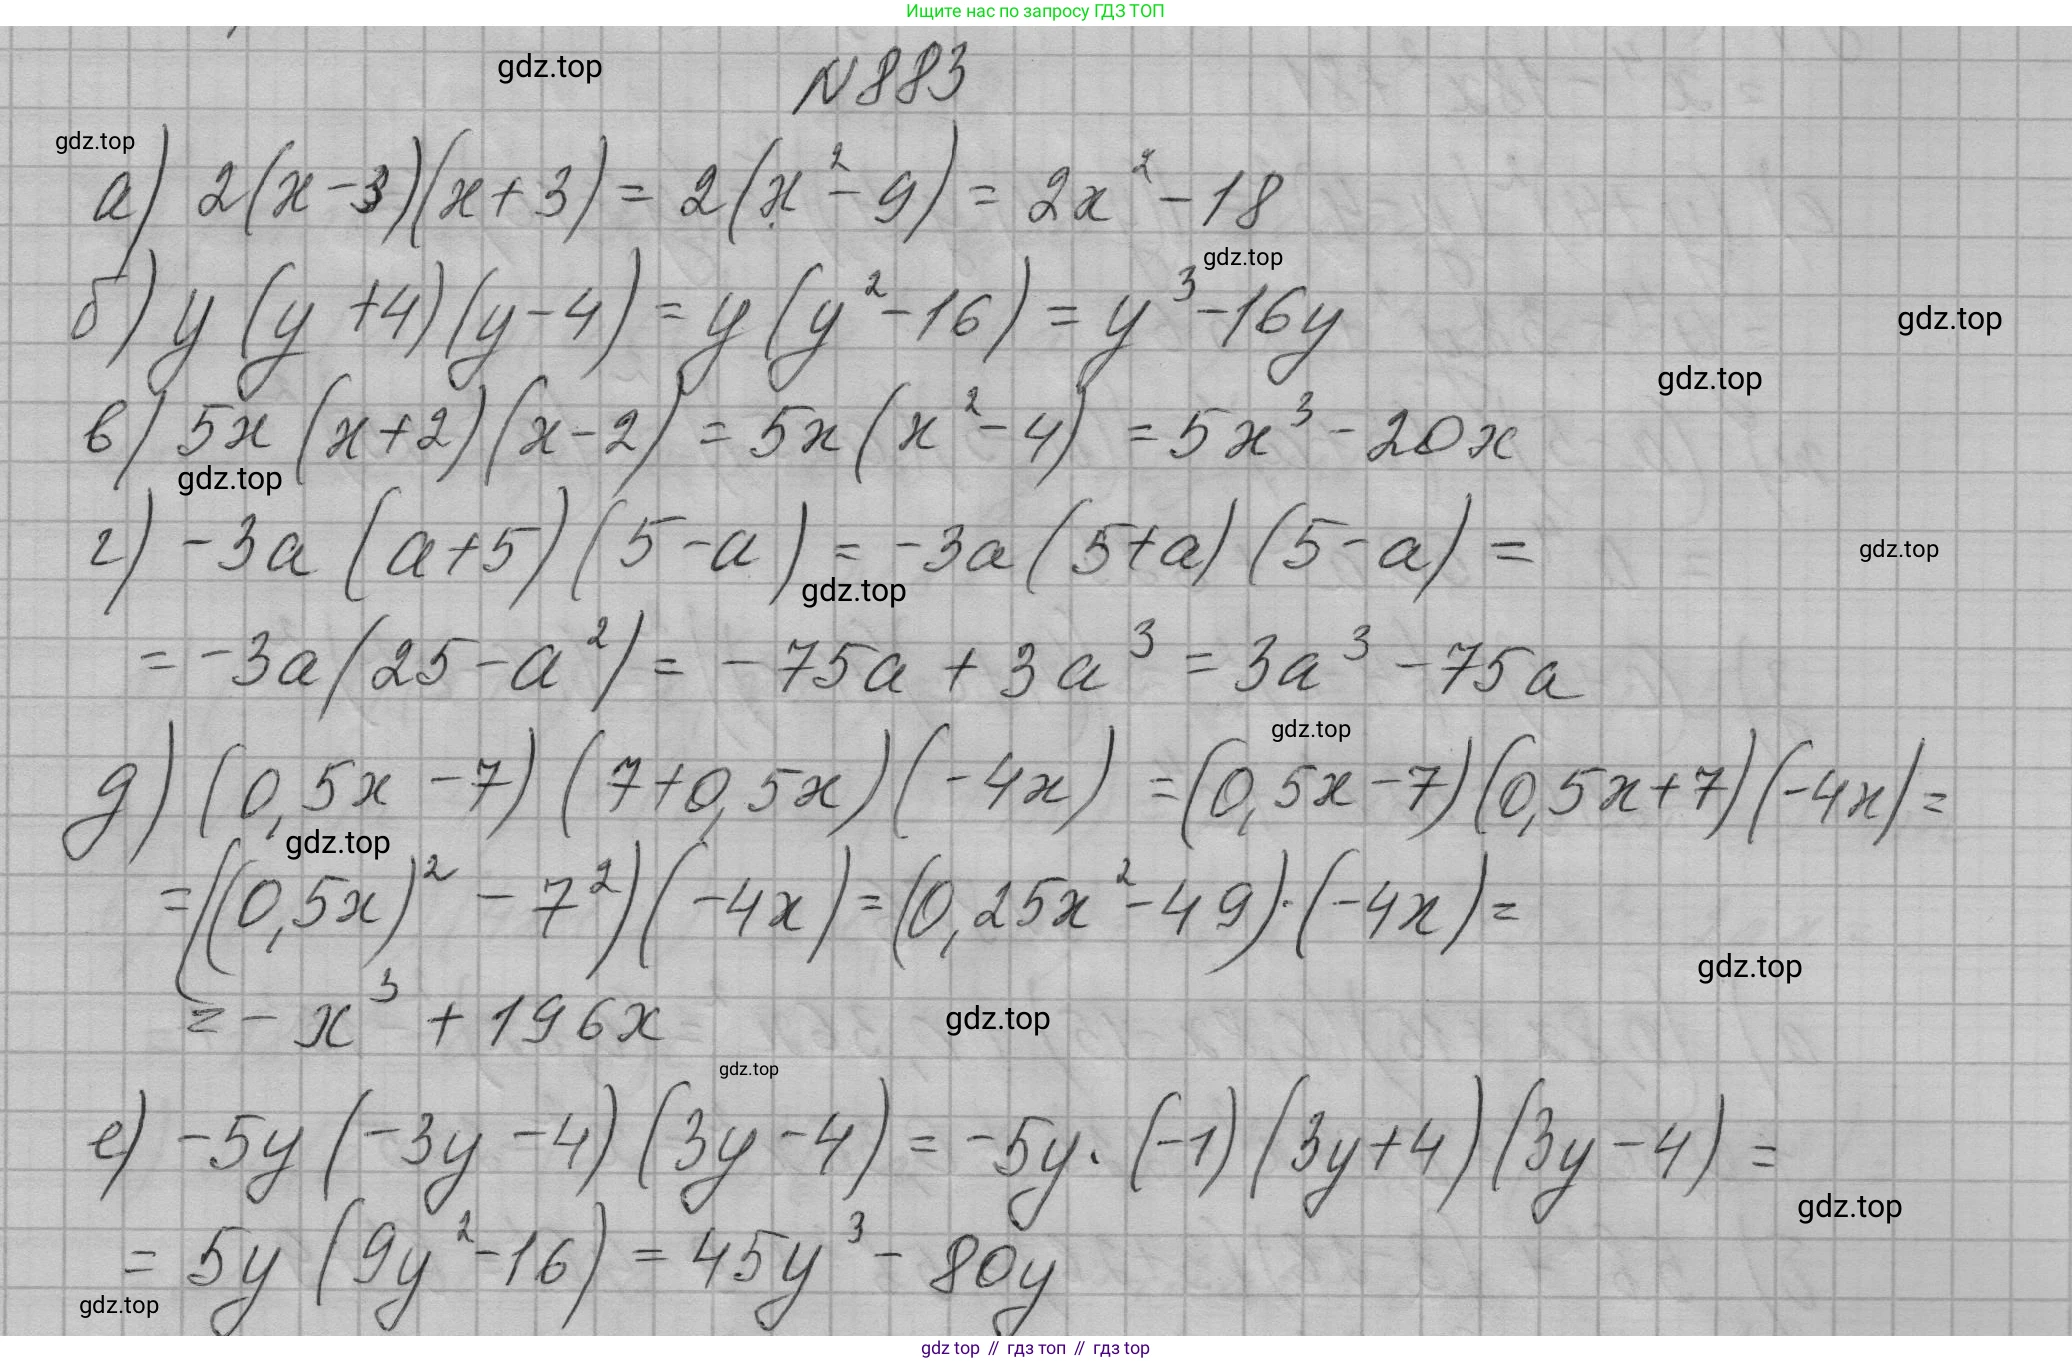 Ищите нас по запросу ГДЗ ТОП
gdz.top
N 883
gdz.top
а) 2(x-3)(x+3) = 2(x²-9) = 2x²-18
gdz.top
б) y(y+4)(y-4) = y(y²-16) = y³-16y
gdz.top
gdz.top
в) 5x(x+2)(x-2) = 5x(x²-4) = 5x³-20x
gdz.top
г) -3a(a+5)(5-a) = -3a(5+a)(5-a) =
gdz.top
gdz.top
= -3a(25-a²) = -75a+3a³ = 3a³-75a
gdz.top
д) (0,5x-7)(7+0,5x)(-4x) = (0,5x-7)(0,5x+7)(-4x) =
gdz.top
= ((0,5x)²-7²)(-4x) = (0,25x²-49)·(-4x) =
gdz.top
= -x³+196x
gdz.top
gdz.top
е) -5y(-3y-4)(3y-4) = -5y·(-1)(3y+4)(3y-4) =
gdz.top
= 5y(9y²-16) = 45y³-80y
gdz.top
gdz top // гдз топ // gdz top